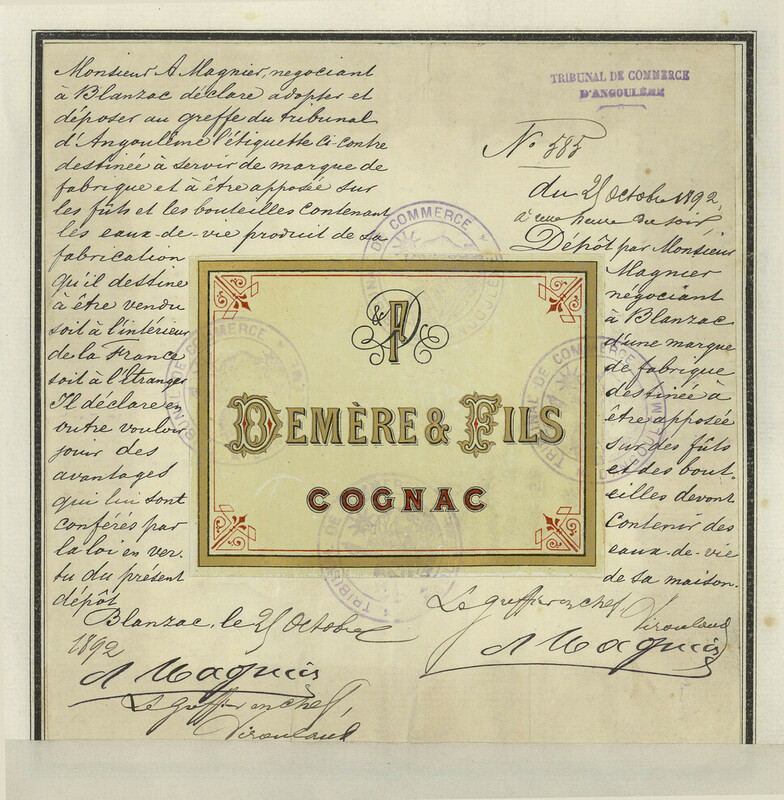 Monsieur A Magnier, negociant
à Blanzac déclare adopter et
déposer au greffe du tribunal
d'Angoulême l'étiquette ci-contre
destinée à servir de marque de
fabrique et à être apposée sur
les fûts et les bouteilles contenant
les eaux-de-vie produit de sa
fabrication
qu'il destine
à être vendu
soit à l'intérieur
de la France
soit à l'Etranger
Il déclare en
outre vouloir
jouir des
avantages
qui lui sont
conférés par
la loi en ver-
tu du présent
dépôt
Blanzac, le 25 Octobre
1892
A Magnier
Le greffier en chef,
TRIBUNAL DE COMMERCE
D'ANGOULÊME
No 585
du 25 Octobre 1892,
à une heure du soir,
Dépôt par Monsieur
Magnier
negociant
à Blanzac
d'une marque
de fabrique
destinée à
être apposée
sur des fûts
et des bout-
eilles devant
contenir des
eaux-de-vie
de sa maison.
Le greffier en chef,
A Magnier
DEMÈRE & FILS
COGNAC
TRIBUNAL DE COMMERCE
TRIBUNAL DE COMMERCE
TRIBUNAL DE COMMERCE